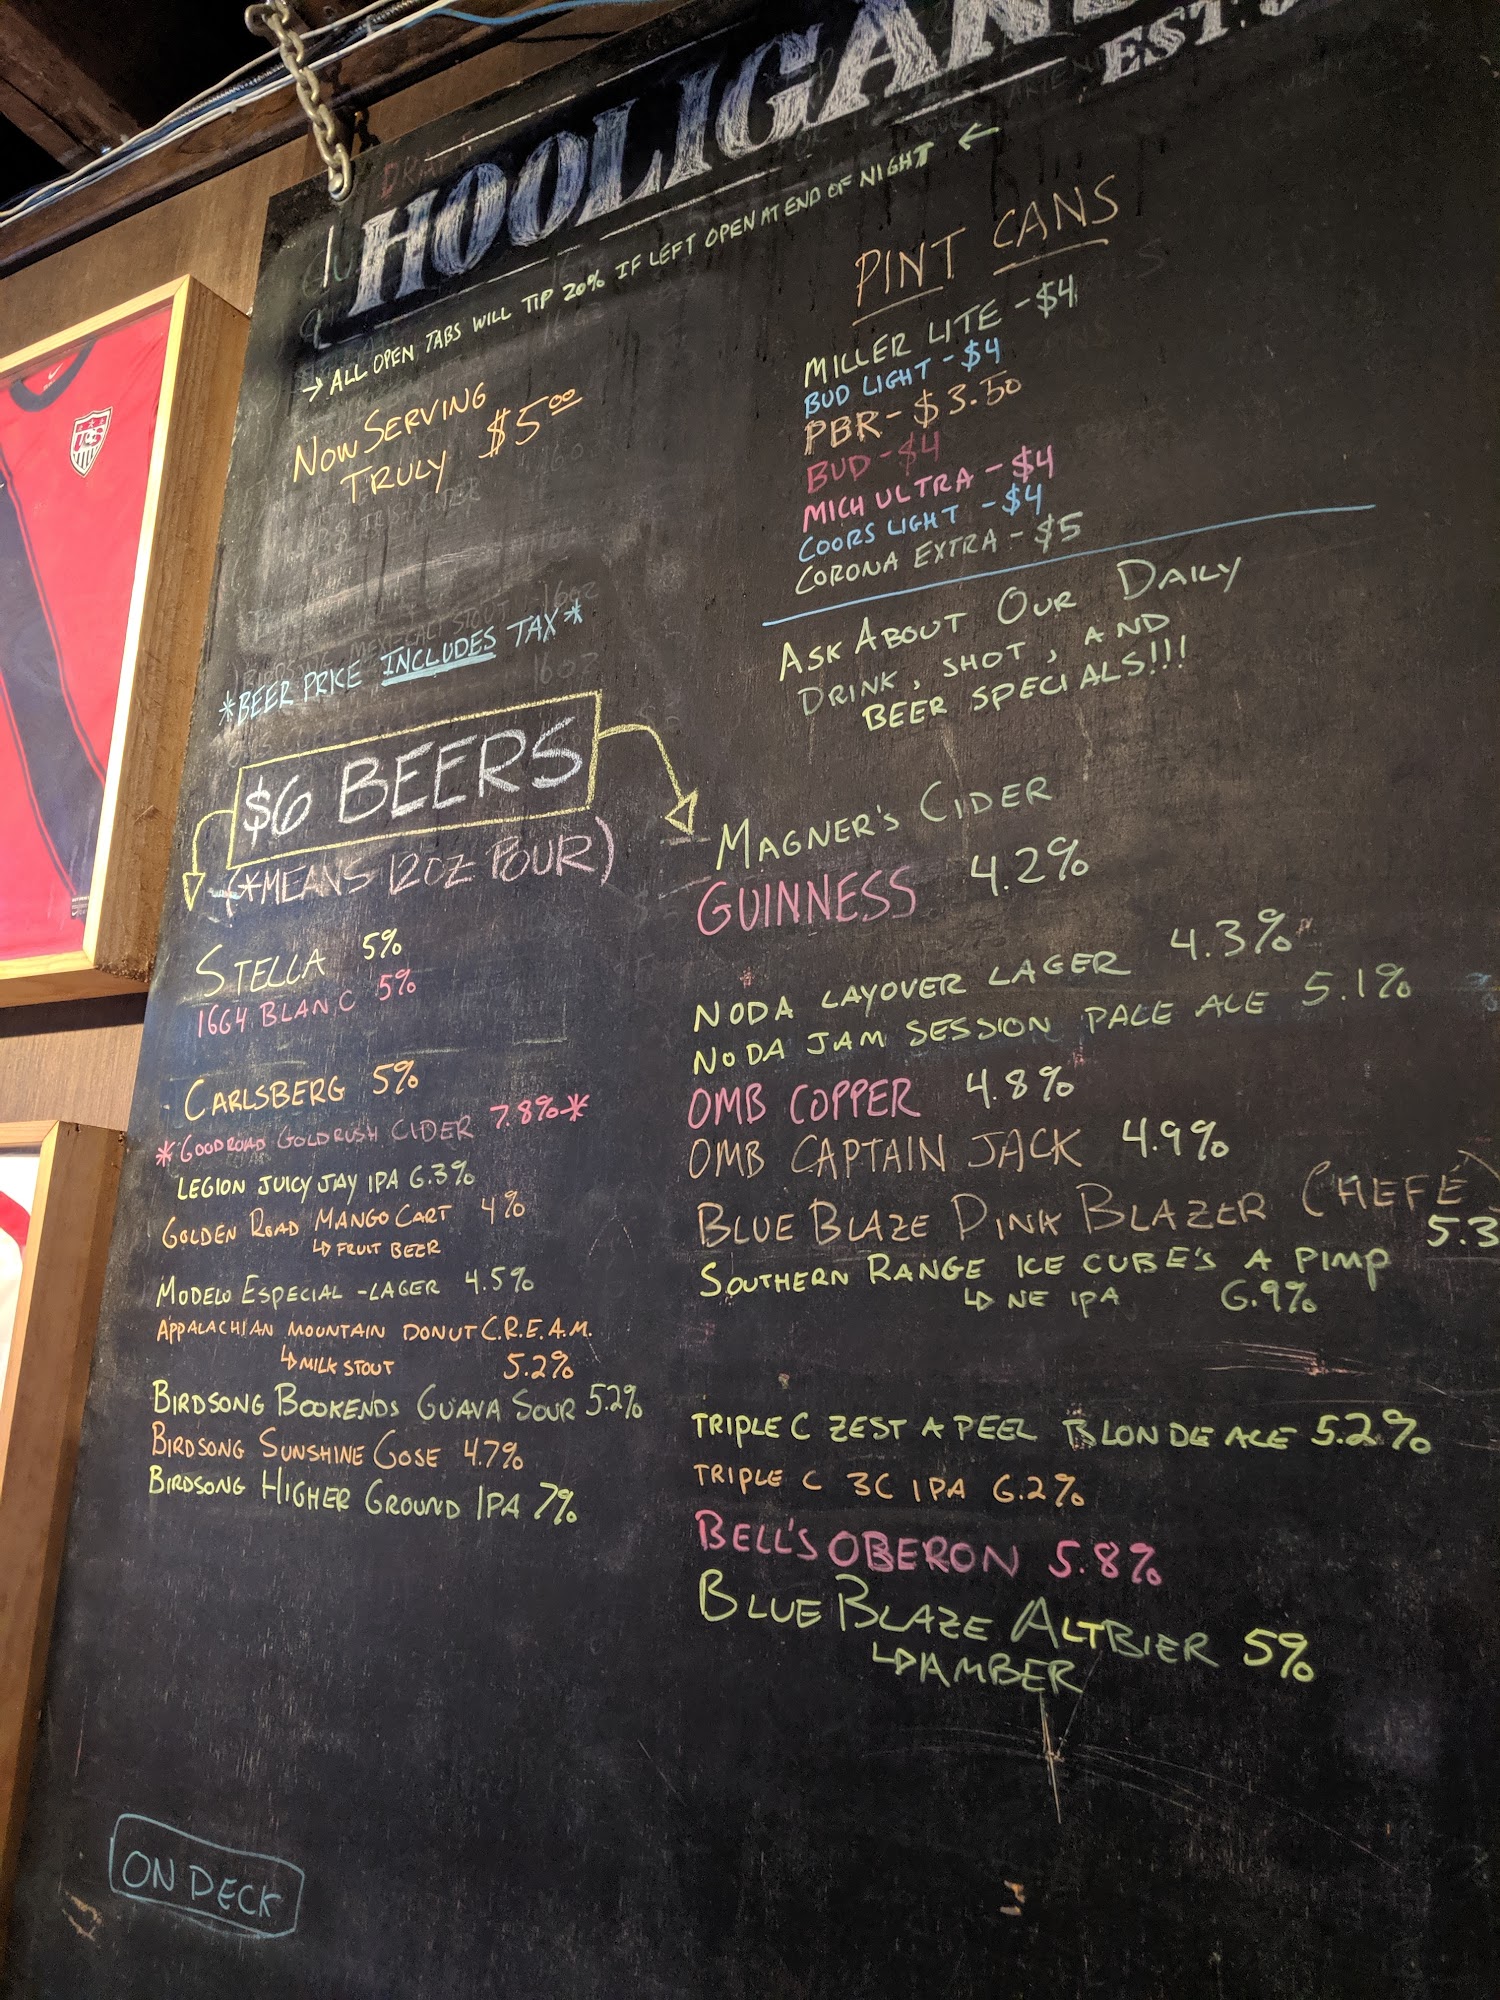 HOOLIGAN
EST.
→ ALL OPEN TABS WILL TIP 20% IF LEFT OPEN AT END OF NIGHT ←
NOW SERVING
TRULY $5.00
*BEER PRICE INCLUDES TAX*
PINT CANS
MILLER LITE - $4
BUD LIGHT - $4
PBR - $3.50
BUD - $4
MICH ULTRA - $4
COORS LIGHT - $4
CORONA EXTRA - $5
ASK ABOUT OUR DAILY
DRINK, SHOT, AND
BEER SPECIALS!!!
$6 BEERS
(*MEANS 12OZ POUR)
STELLA 5%
1664 BLANC 5%
CARLSBERG 5%
*GOODROAD GOLDRUSH CIDER 7.8%*
LEGION JUICY JAY IPA 6.3%
GOLDEN ROAD MANGO CART 4%
↳ FRUIT BEER
MODELO ESPECIAL - LAGER 4.5%
APPALACHIAN MOUNTAIN DONUT C.R.E.A.M.
↳ MILK STOUT 5.2%
BIRDSONG BOOKENDS GUAVA SOUR 5.2%
BIRDSONG SUNSHINE GOSE 4.7%
BIRDSONG HIGHER GROUND IPA 7%
MAGNER'S CIDER
GUINNESS 4.2%
NODA LAYOVER LAGER 4.3%
NODA JAM SESSION PALE ALE 5.1%
OMB COPPER 4.8%
OMB CAPTAIN JACK 4.9%
BLUE BLAZE PINK BLAZER (HEFE
5.3
SOUTHERN RANGE ICE CUBE'S A PIMP
↳ NE IPA 6.9%
TRIPLE C ZEST A PEEL BLONDE ALE 5.2%
TRIPLE C 3C IPA 6.2%
BELL'S OBERON 5.8%
BLUE BLAZE ALTBIER 5%
↳ AMBER
ON DECK